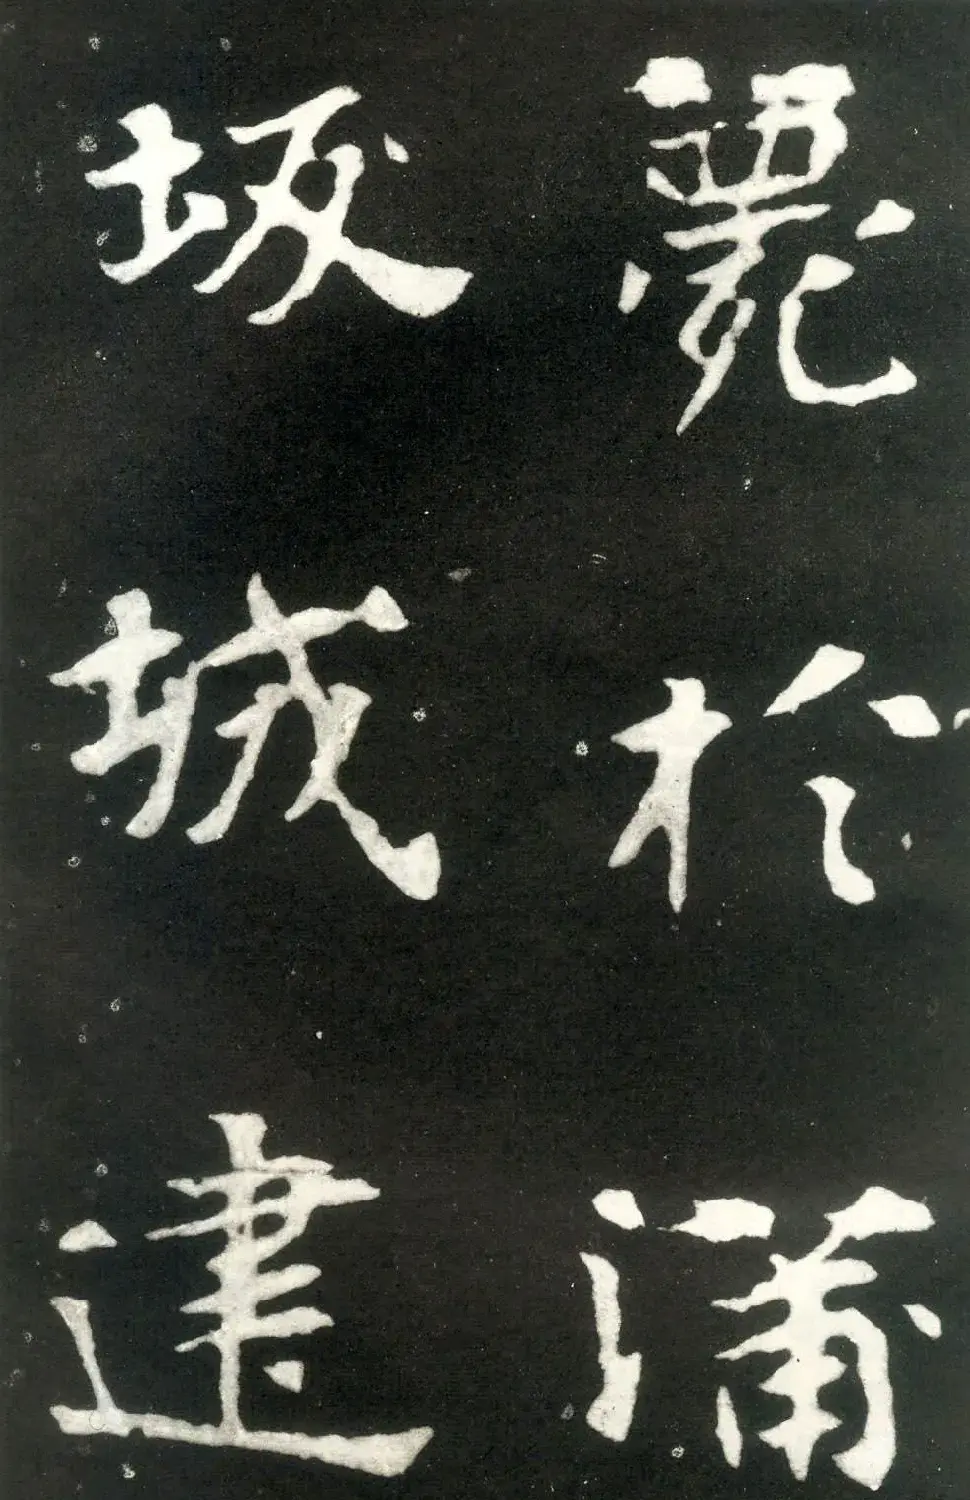 薨於蒲
坂城建